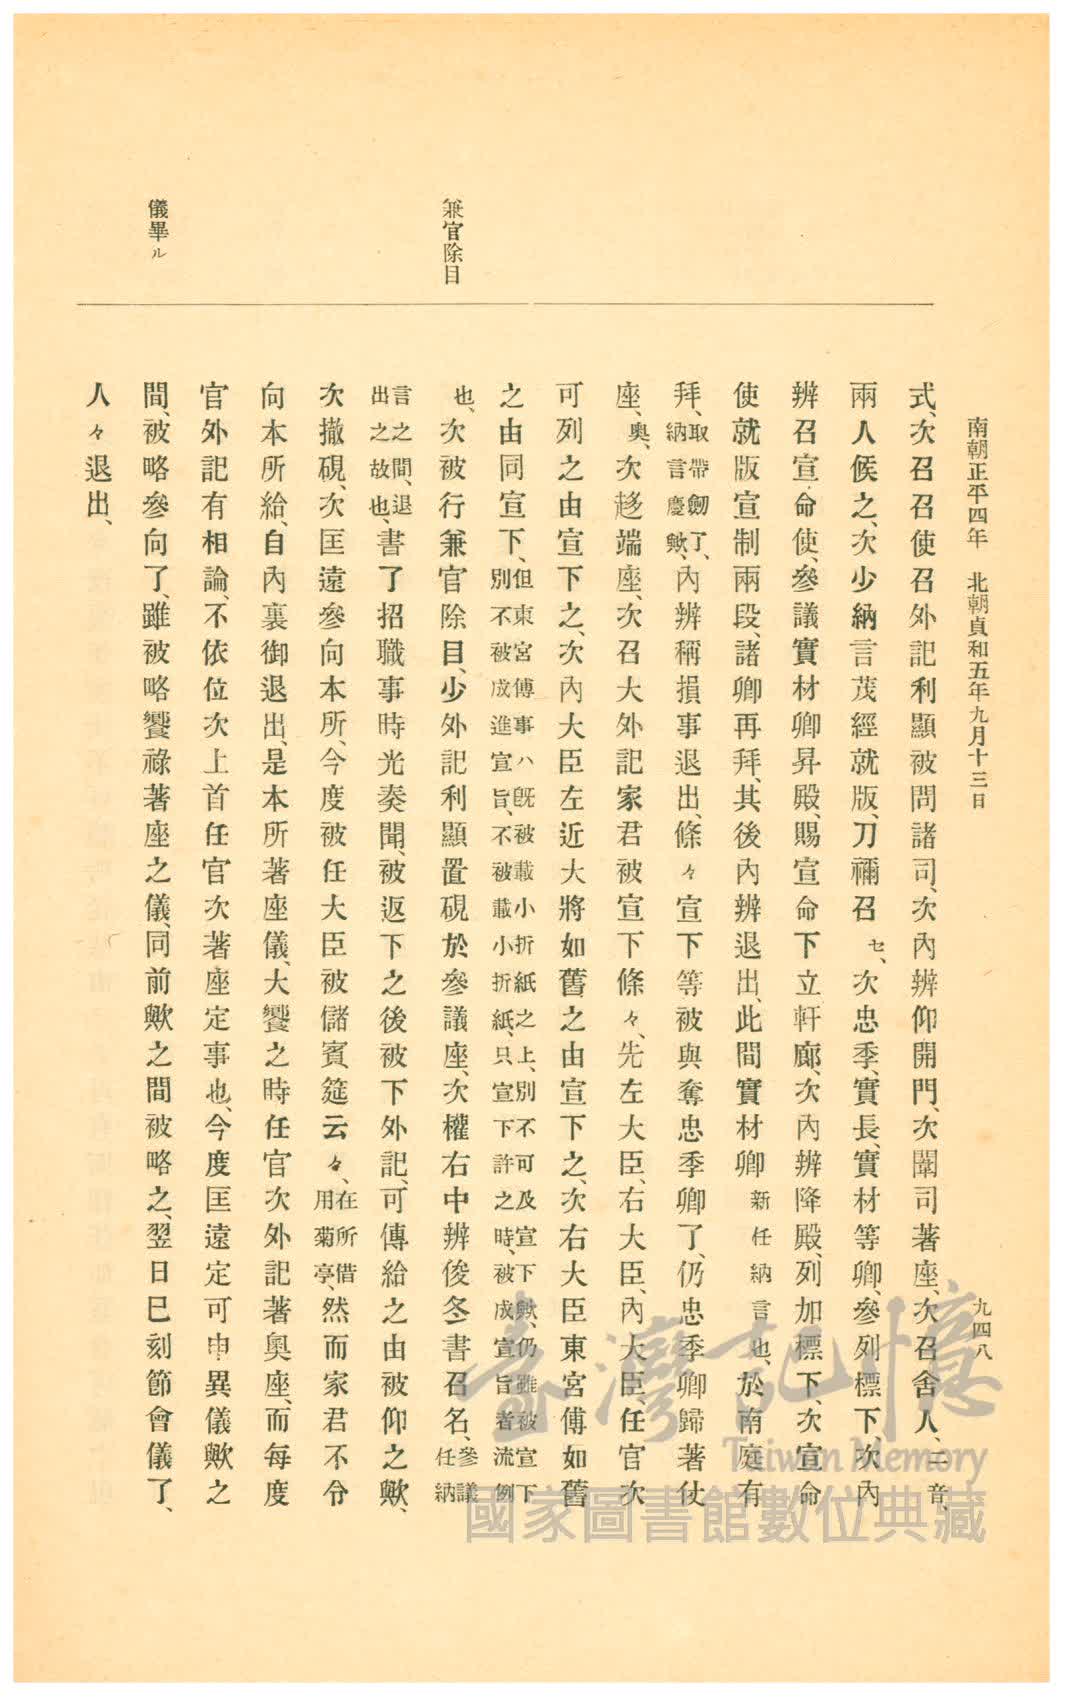 南朝正平四年　北朝貞和五年九月十三日
九四八
兼官除目
儀畢ル
式、次召召使召外記利顯被問諸司、次內辨仰開門、次闈司著座、次召舍人、二音、
兩人候之、次少納言茂經就版、刀禰召セ、次忠季、實長、實材等卿、參列標下、次內
辨召宣命使、參議實材卿昇殿、賜宣命下立軒廊、次內辨降殿、列加標下、次宣命
使就版宣制兩段、諸卿再拜、其後內辨退出、此間實材卿新任納言也、於南庭有
拜、取帶劒了、納言慶歟、內辨稱損事退出、條々宣下等被與奪忠季卿了、仍忠季卿歸著仗
座、奧、次移端座、次召大外記家君被宣下條々、先左大臣、右大臣、內大臣、任官次
可列之由宣下之、次內大臣左近大將如舊之由宣下之、次右大臣東宮傅如舊
之由同宣下、但東宮傅事ハ旣被載小折紙之上、別不可及宣下歟、仍雖被宣下
別不被成進宣旨、不被載小折紙、只宣下許之時、被成宣旨者流例
也、次被行兼官除目、少外記利顯置硯於參議座、次權右中辨俊冬書召名、參議任納
言之間、退出之故也、書了招職事時光奏聞、被返下之後被下外記、可傳給之由被仰之歟、
次撤硯、次匡遠參向本所、今度被任大臣被儲賓筵云々、在所借用菊亭、然而家君不令
向本所給、自內裏御退出、是本所著座儀、大饗之時任官次外記著奧座、而每度
官外記有相論、不依位次上首任官次著座定事也、今度匡遠定可申異儀歟之
間、被略參向了、雖被略饗祿著座之儀、同前歟之間被略之、翌日巳刻節會儀了、
人々退出、
臺灣記憶
Taiwan Memory
國家圖書館數位典藏